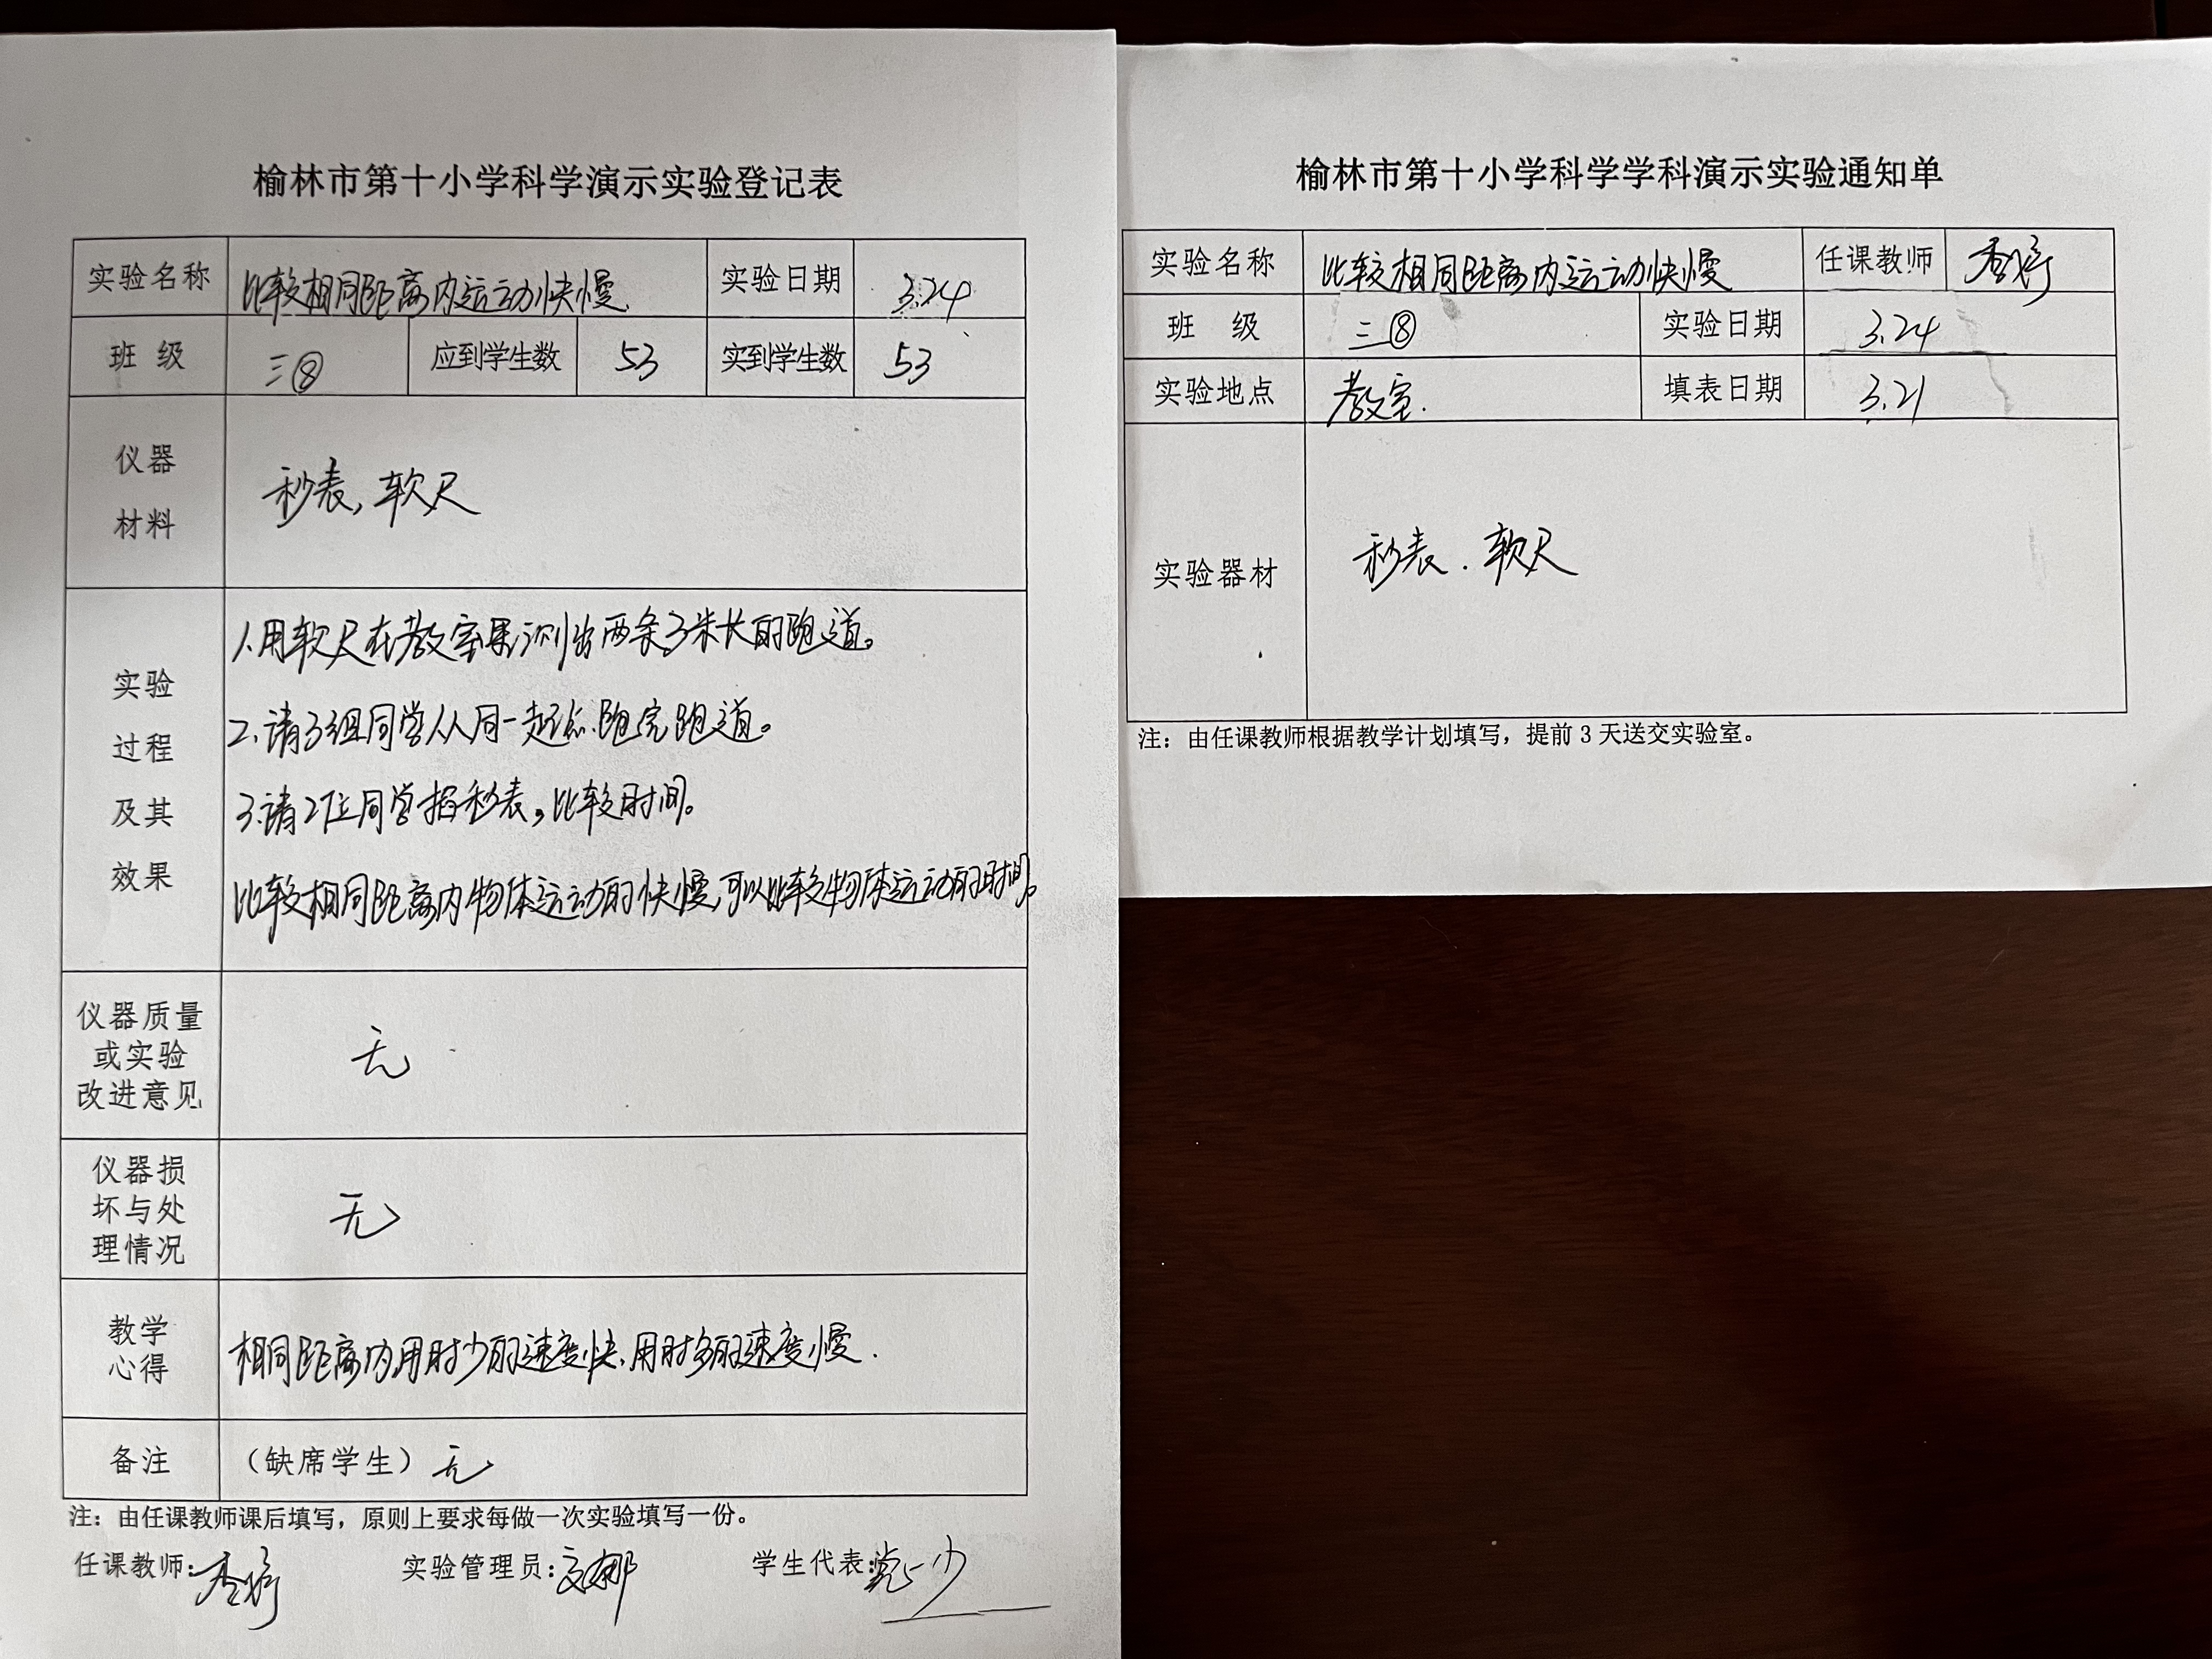 榆林市第十小学科学演示实验登记表
实验名称 比较相同距离内运动快慢 实验日期 3.24
班 级 三⑧ 应到学生数 53 实到学生数 53
仪器
材料
秒表,软尺
实验
过程
及其
效果
1.用软尺在教室里测出两条3米长的跑道。
2.请3组同学从同一起点跑完跑道。
3.请2位同学掐秒表,比较时间。
比较相同距离内物体运动的快慢,可以比较物体运动的时间。
仪器质量
或实验
改进意见
无
仪器损
坏与处
理情况
无
教学
心得
相同距离内,用时少的速度快,用时多的速度慢.
备注 (缺席学生)无
注:由任课教师课后填写,原则上要求每做一次实验填写一份。
任课教师: 实验管理员: 学生代表:
榆林市第十小学科学学科演示实验通知单
实验名称 比较相同距离内运动快慢 任课教师
班 级 三⑧ 实验日期 3.24
实验地点 教室. 填表日期 3.21
实验器材 秒表.软尺
注:由任课教师根据教学计划填写,提前 3 天送交实验室。